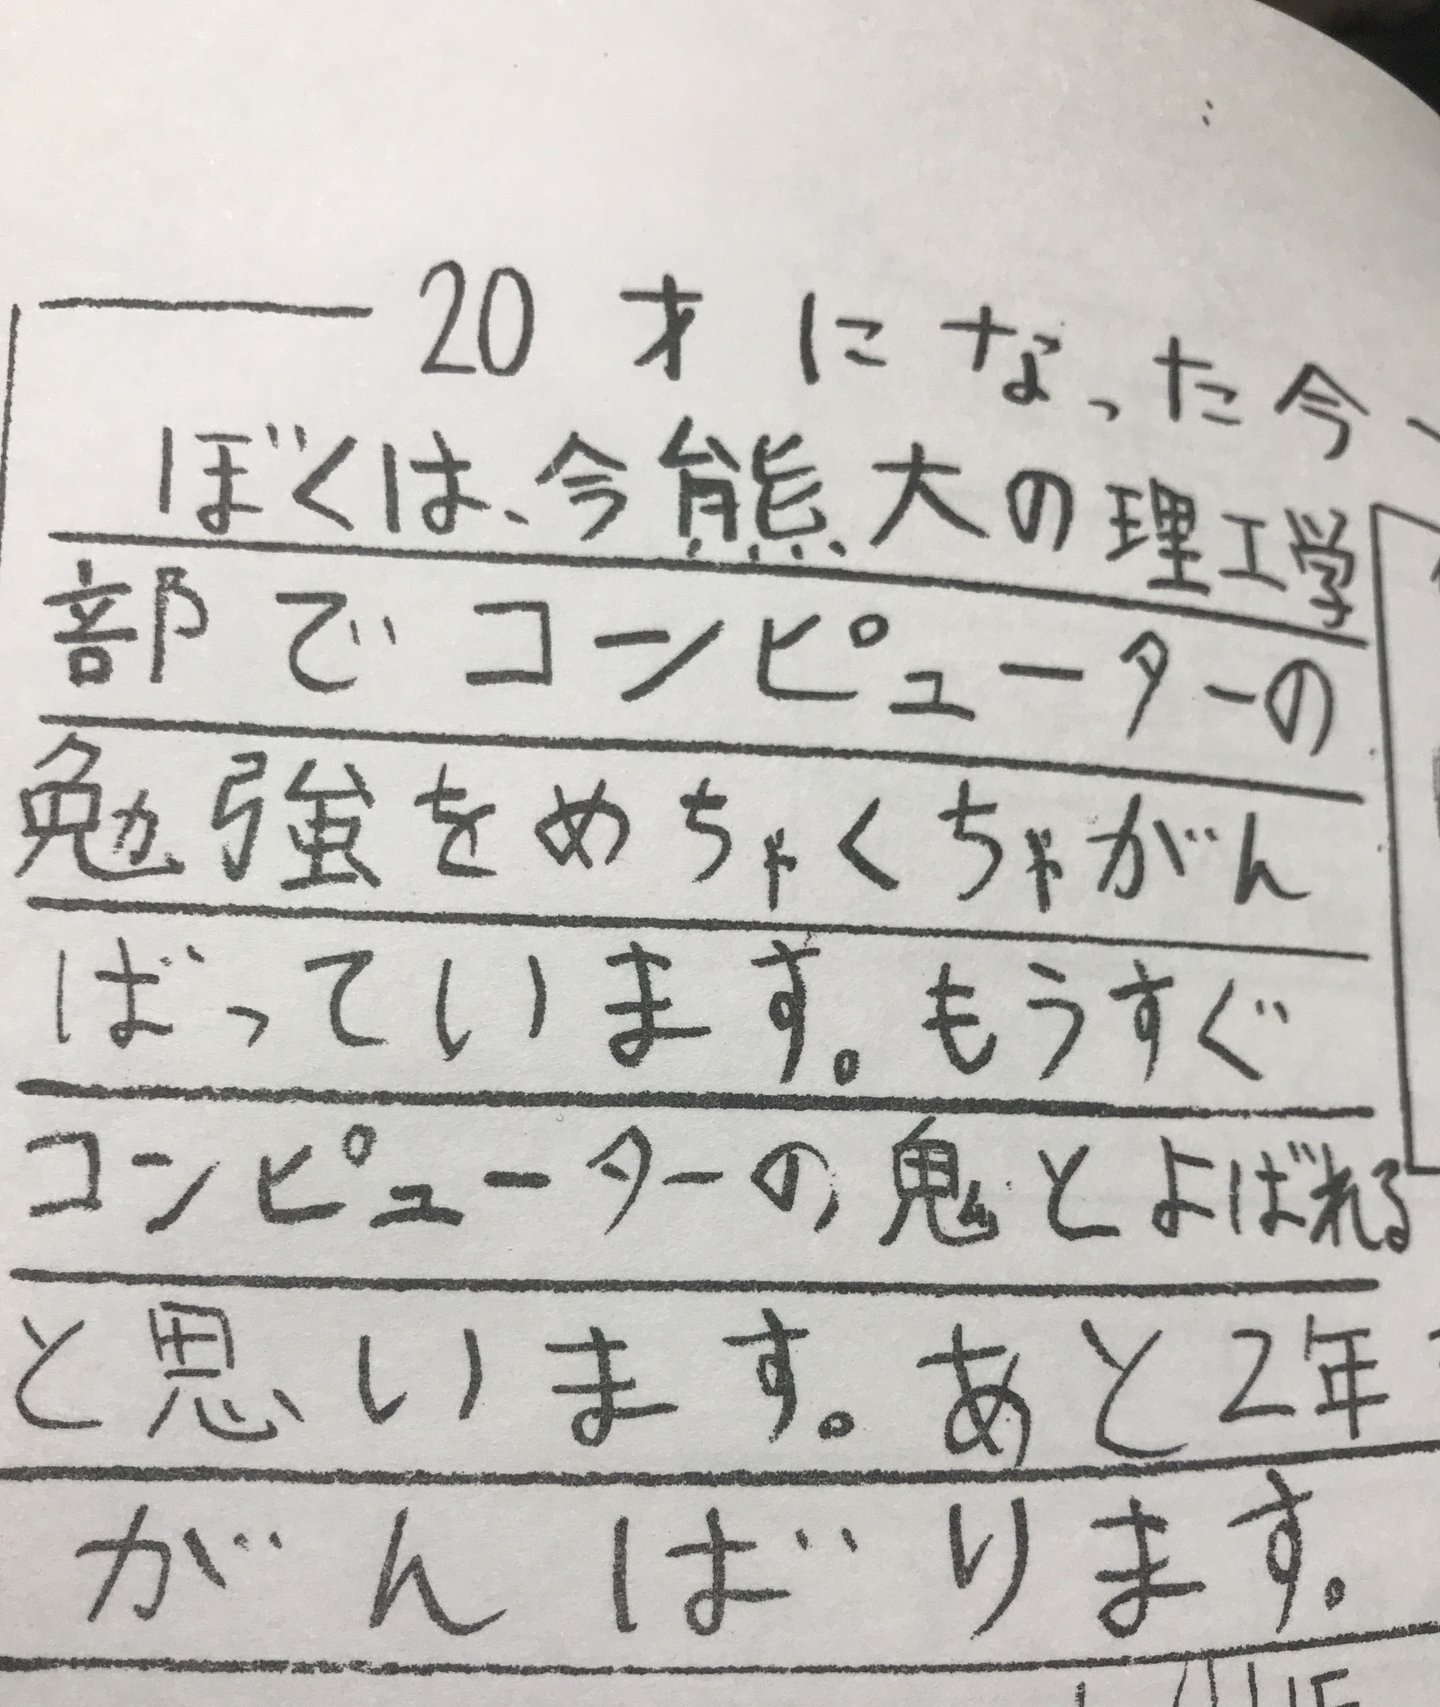 20才になった今
ぼくは、今熊大の理工学
部でコンピューターの
勉強をめちゃくちゃがん
ばっています。もうすぐ
コンピューターの鬼とよばれる
と思います。あと2年
がんばります。